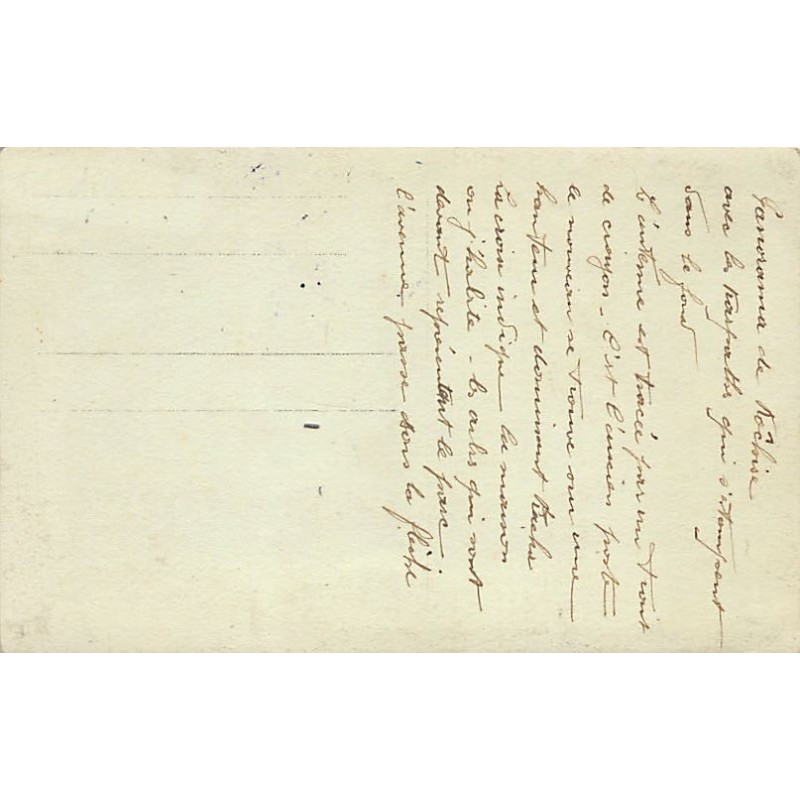 Panorama de
avec les Karpaths qui s'estompent
dans le fond
L'antenne est tracée par un trait
de crayon - C'est l'ancien poste
le nouveau se trouve sur une
hauteur et dominant
La croix indique la maison
ou j'habite - les arbres qui sont
devant représentent le parc.
l'avenue passe sous la flèche